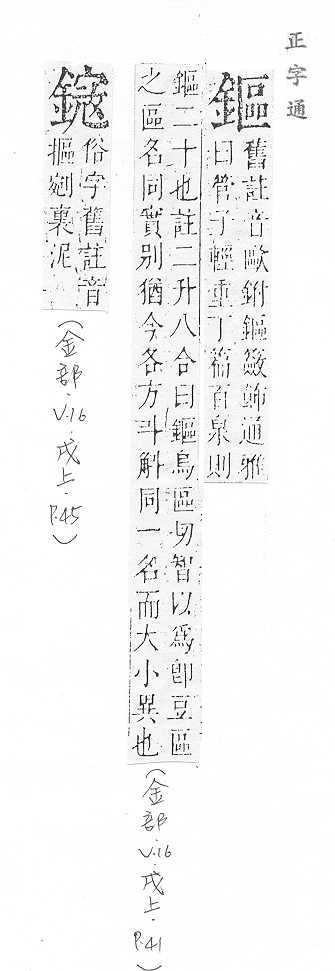 正字通
鏂
舊註音歐鉜鏂簽飾通雅
曰管子輕重丁篇百泉則
鏂二十也註二升八合曰鏂烏區切智以爲卽豆區
之區名同實別猶今各方斗斛同一名而大小異也
(金部.V.16.戌上.P.41)
俗字舊註音
摳剜裏泥
(金部.V.16.戌上.P.45)